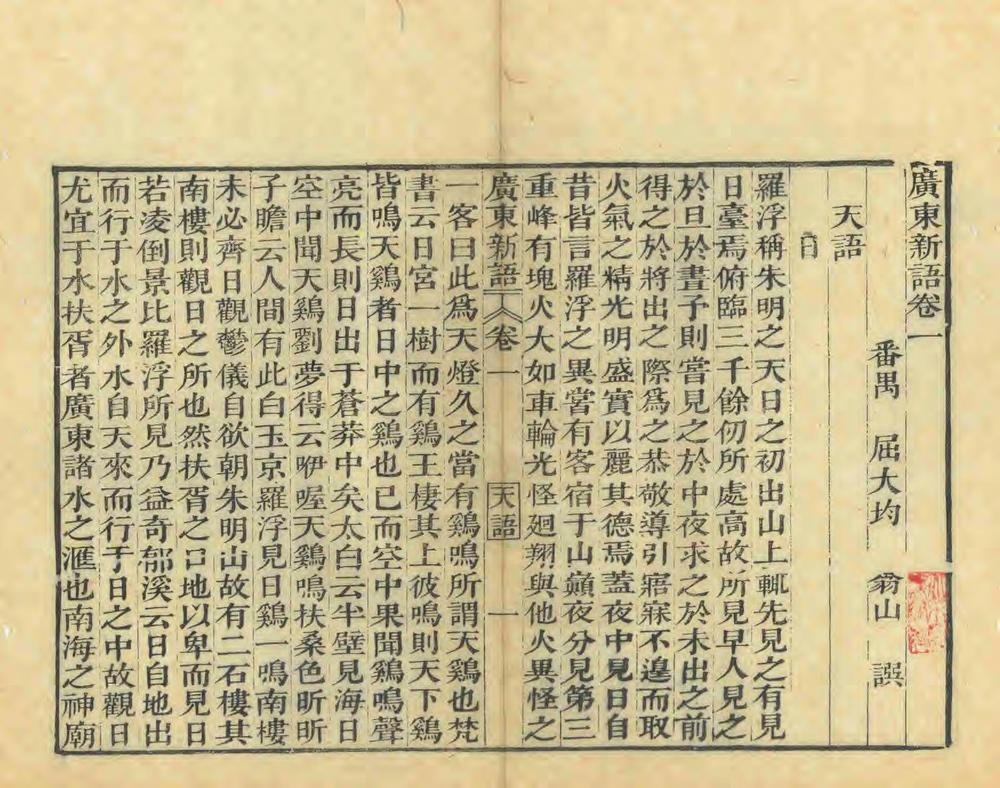 廣東新語卷一
番禺 屈大均 翁山 譔
天語
日
羅浮稱朱明之天日之初出山上輒先見之有見
日臺焉俯臨三千餘仞所處高故所見早人見之
於旦於晝予則嘗見之於中夜求之於未出之前
得之於將出之際為之恭敬導引寤寐不遑而取
火氣之精光明盛實以麗其德焉蓋夜中見日自
昔皆言羅浮之異嘗有客宿于山巔夜分見第三
重峰有塊火大如車輪光怪廻翔與他火異怪之
廣東新語 卷一 天語 一
一客曰此為天燈久之當有鷄鳴所謂天鷄也梵
書云日宮一樹而有鷄王棲其上彼鳴則天下鷄
皆鳴天鷄者日中之鷄也已而空中果聞鷄鳴聲
亮而長則日出于蒼莽中矣太白云半壁見海日
空中聞天鷄劉夢得云咿喔天鷄鳴扶桑色昕昕
子瞻云人間有此白玉京羅浮見日鷄一鳴南樓
未必齊日觀鬱儀自欲朝朱明山故有二石樓其
南樓則觀日之所也然扶胥之口地以卑而見日
若凌倒景比羅浮所見乃益奇郁溪云日自地出
而行于水之外水自天來而行于日之中故觀日
尤宜于水扶胥者廣東諸水之滙也南海之神廟